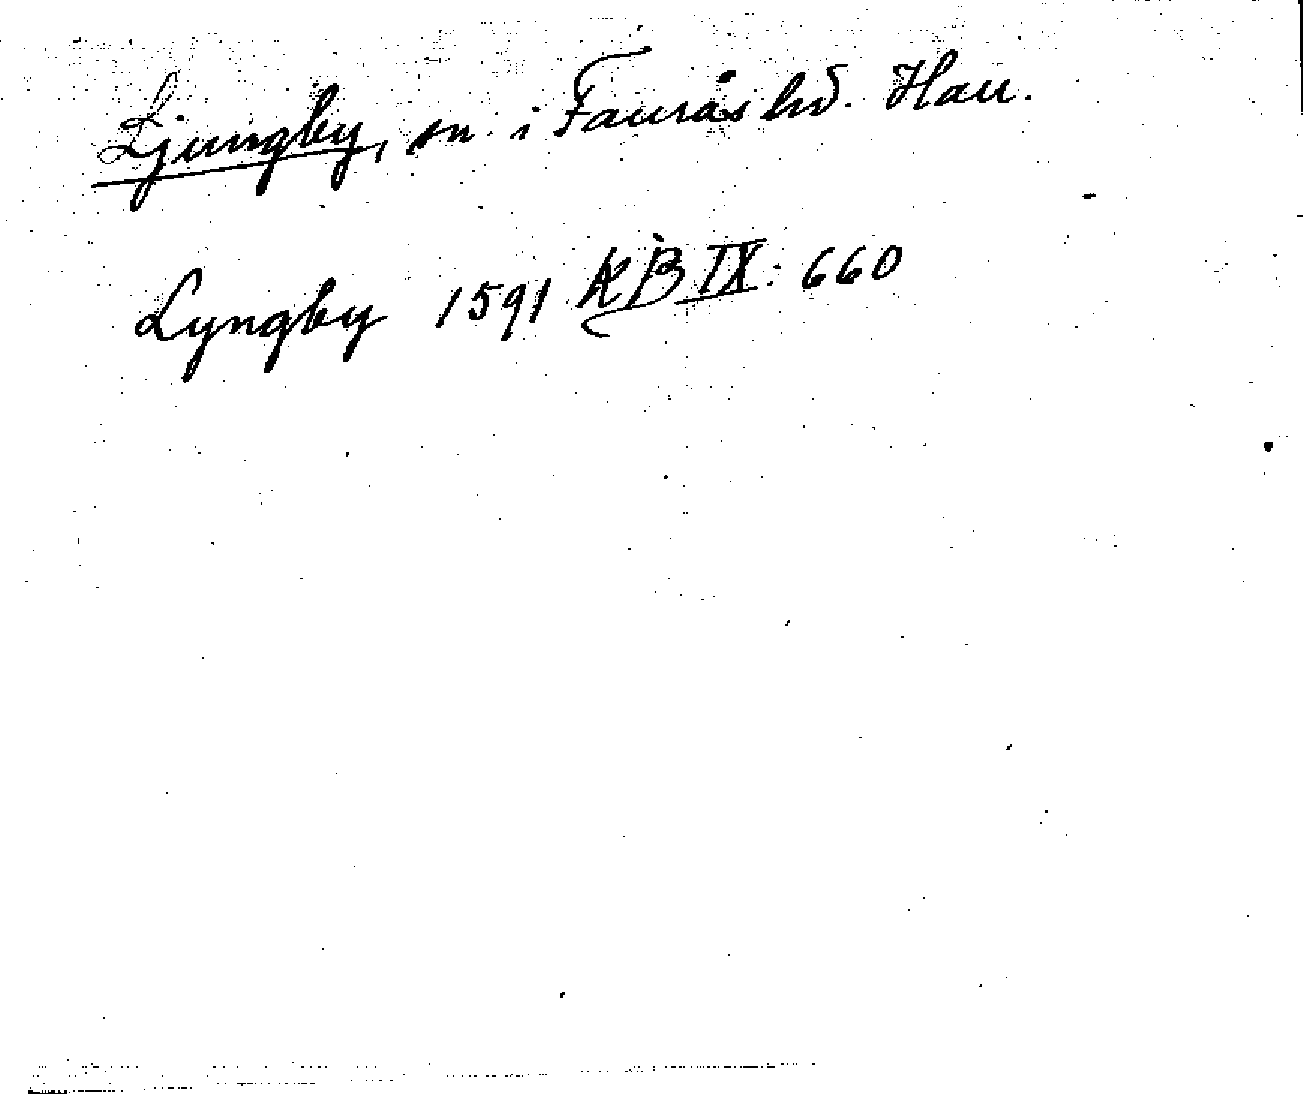 Ljungby, sn i Faurås hd. Hall.
Lyngby 1591 KB IX: 660